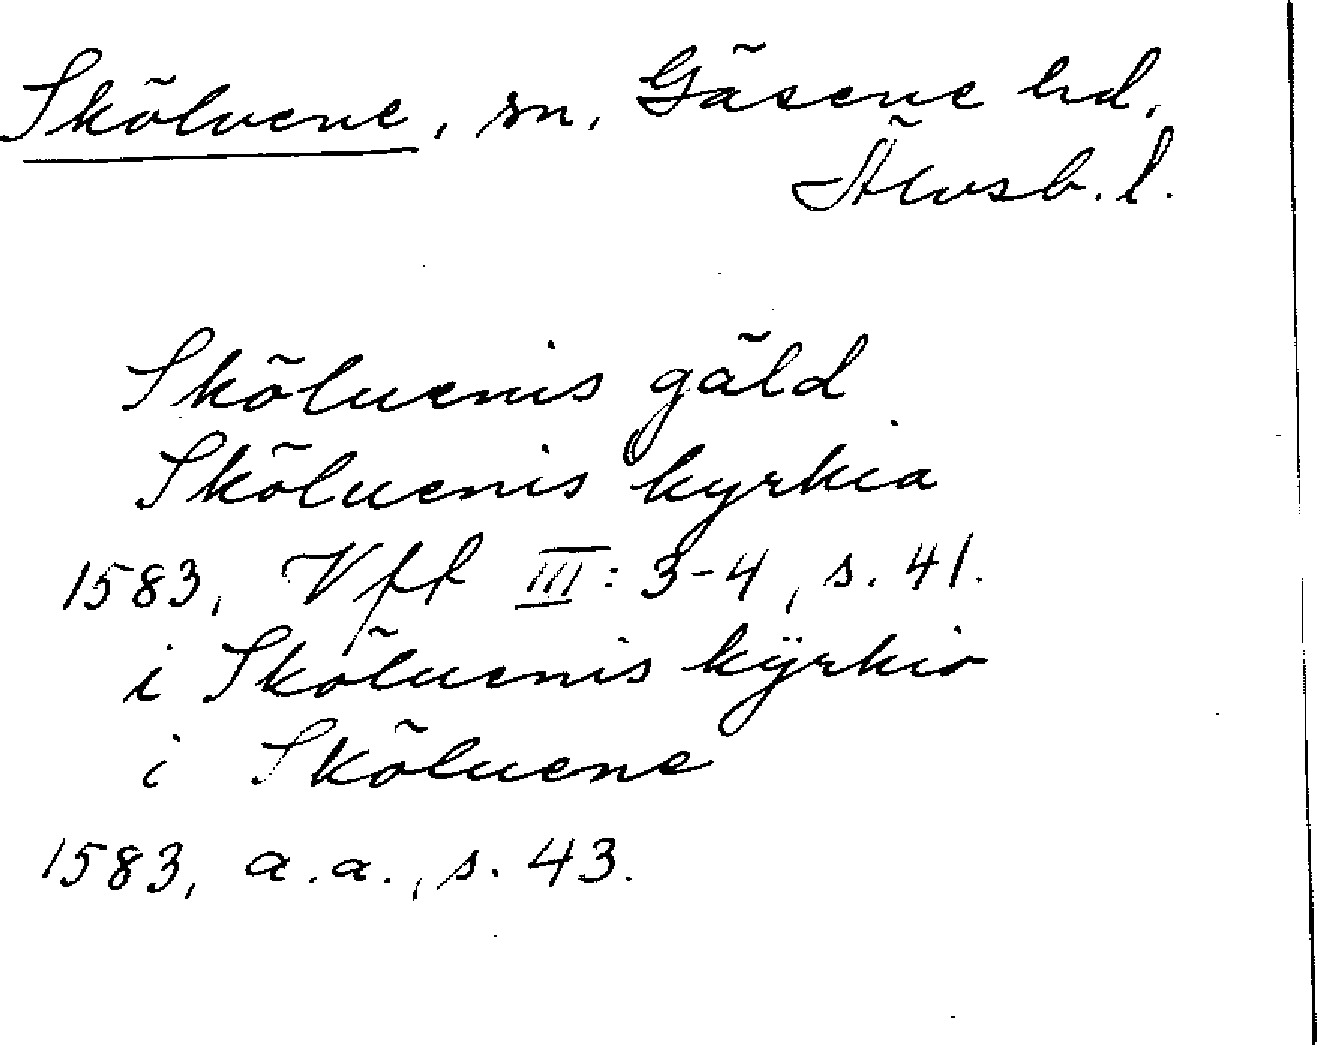 Skölvene, sn, Gäsene hd,
Älvsb. l.
Skölvenis gäld
Skölvenis kyrkia
1583, Vfk III: 3-4, s. 41.
i Sköluenis kÿrkio
i Sköluene
1583, a.a., s. 43.